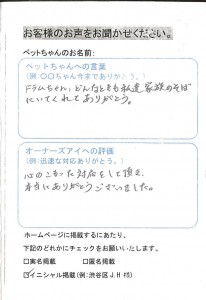 お客様のお声をお聞かせください。
ペットちゃんのお名前:
ペットちゃんへの言葉
(例:〇〇ちゃん今までありがとう。)
ドラムちゃん、どんなときも私達家族のそば
にいてくれてありがとう。
オーナーズアイへの評価
(例:迅速な対応ありがとう。)
心のこもった対応をして頂き、
本当にありがとうございました。
ホームページに掲載するにあたり、
下記のどれかにチェックをお願いいたします。
□実名掲載 □匿名掲載
☑イニシャル掲載(例:渋谷区J.H様)